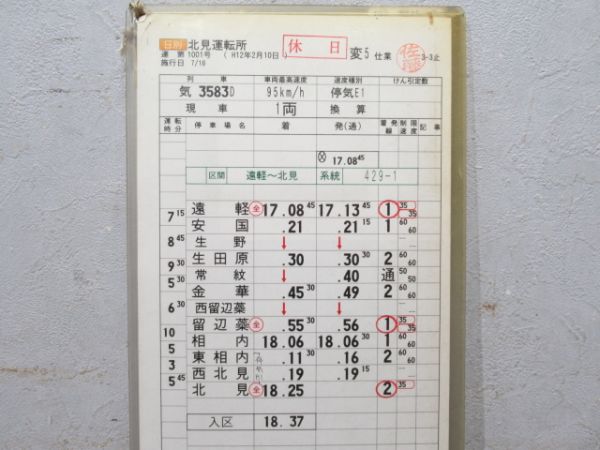 日別 北見運転所 休日 変5仕業 佐藤 3-3止
運第1001号 (H12年2月10日)
施行日 7/16
列車 車両最高速度 速度種別 けん引定数
気 3583D 95km/h 停気E1
現車 1両 換算
運転時分 停車場名 着 発(通) 着発線 制限速度 記事
17.08 45
区間 遠軽～北見 系統 429-1
遠軽 全 17.08 45 17.13 45 1 35 35
7 15
安国 .21 .21 15 1 60 60
生野 ↓ ↓
8 45
生田原 .30 .30 30 2 60 60
9 30
常紋 .40 通 50 50
5 30
金華 .45 30 .49 2 60 60
西留辺蘂 ↓ ↓
6 30
留辺蘂 全 .55 30 .56 1 35 35
10
相内 18.06 18.06 30 1 60 60
5
東相内 .11 30 .16 2 60 60
3
西北見 .19 .19 15
5 45
北見 全 18.25 2 35
入区 18.37